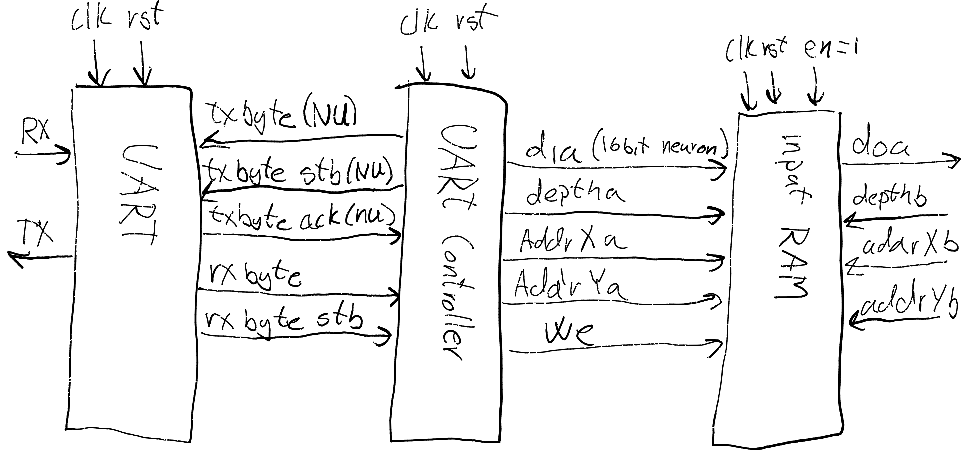 clk rst
clk rst
clk rst en=1
RX
TX
UART
txbyte (NU)
txbyte stb (NU)
txbyte ack (nu)
rx byte
rx byte stb
UART Controller
dia (16bit neuron)
depth a
Addr X a
Addr Y a
We
input RAM
doa
depthb
addrXb
addrYb